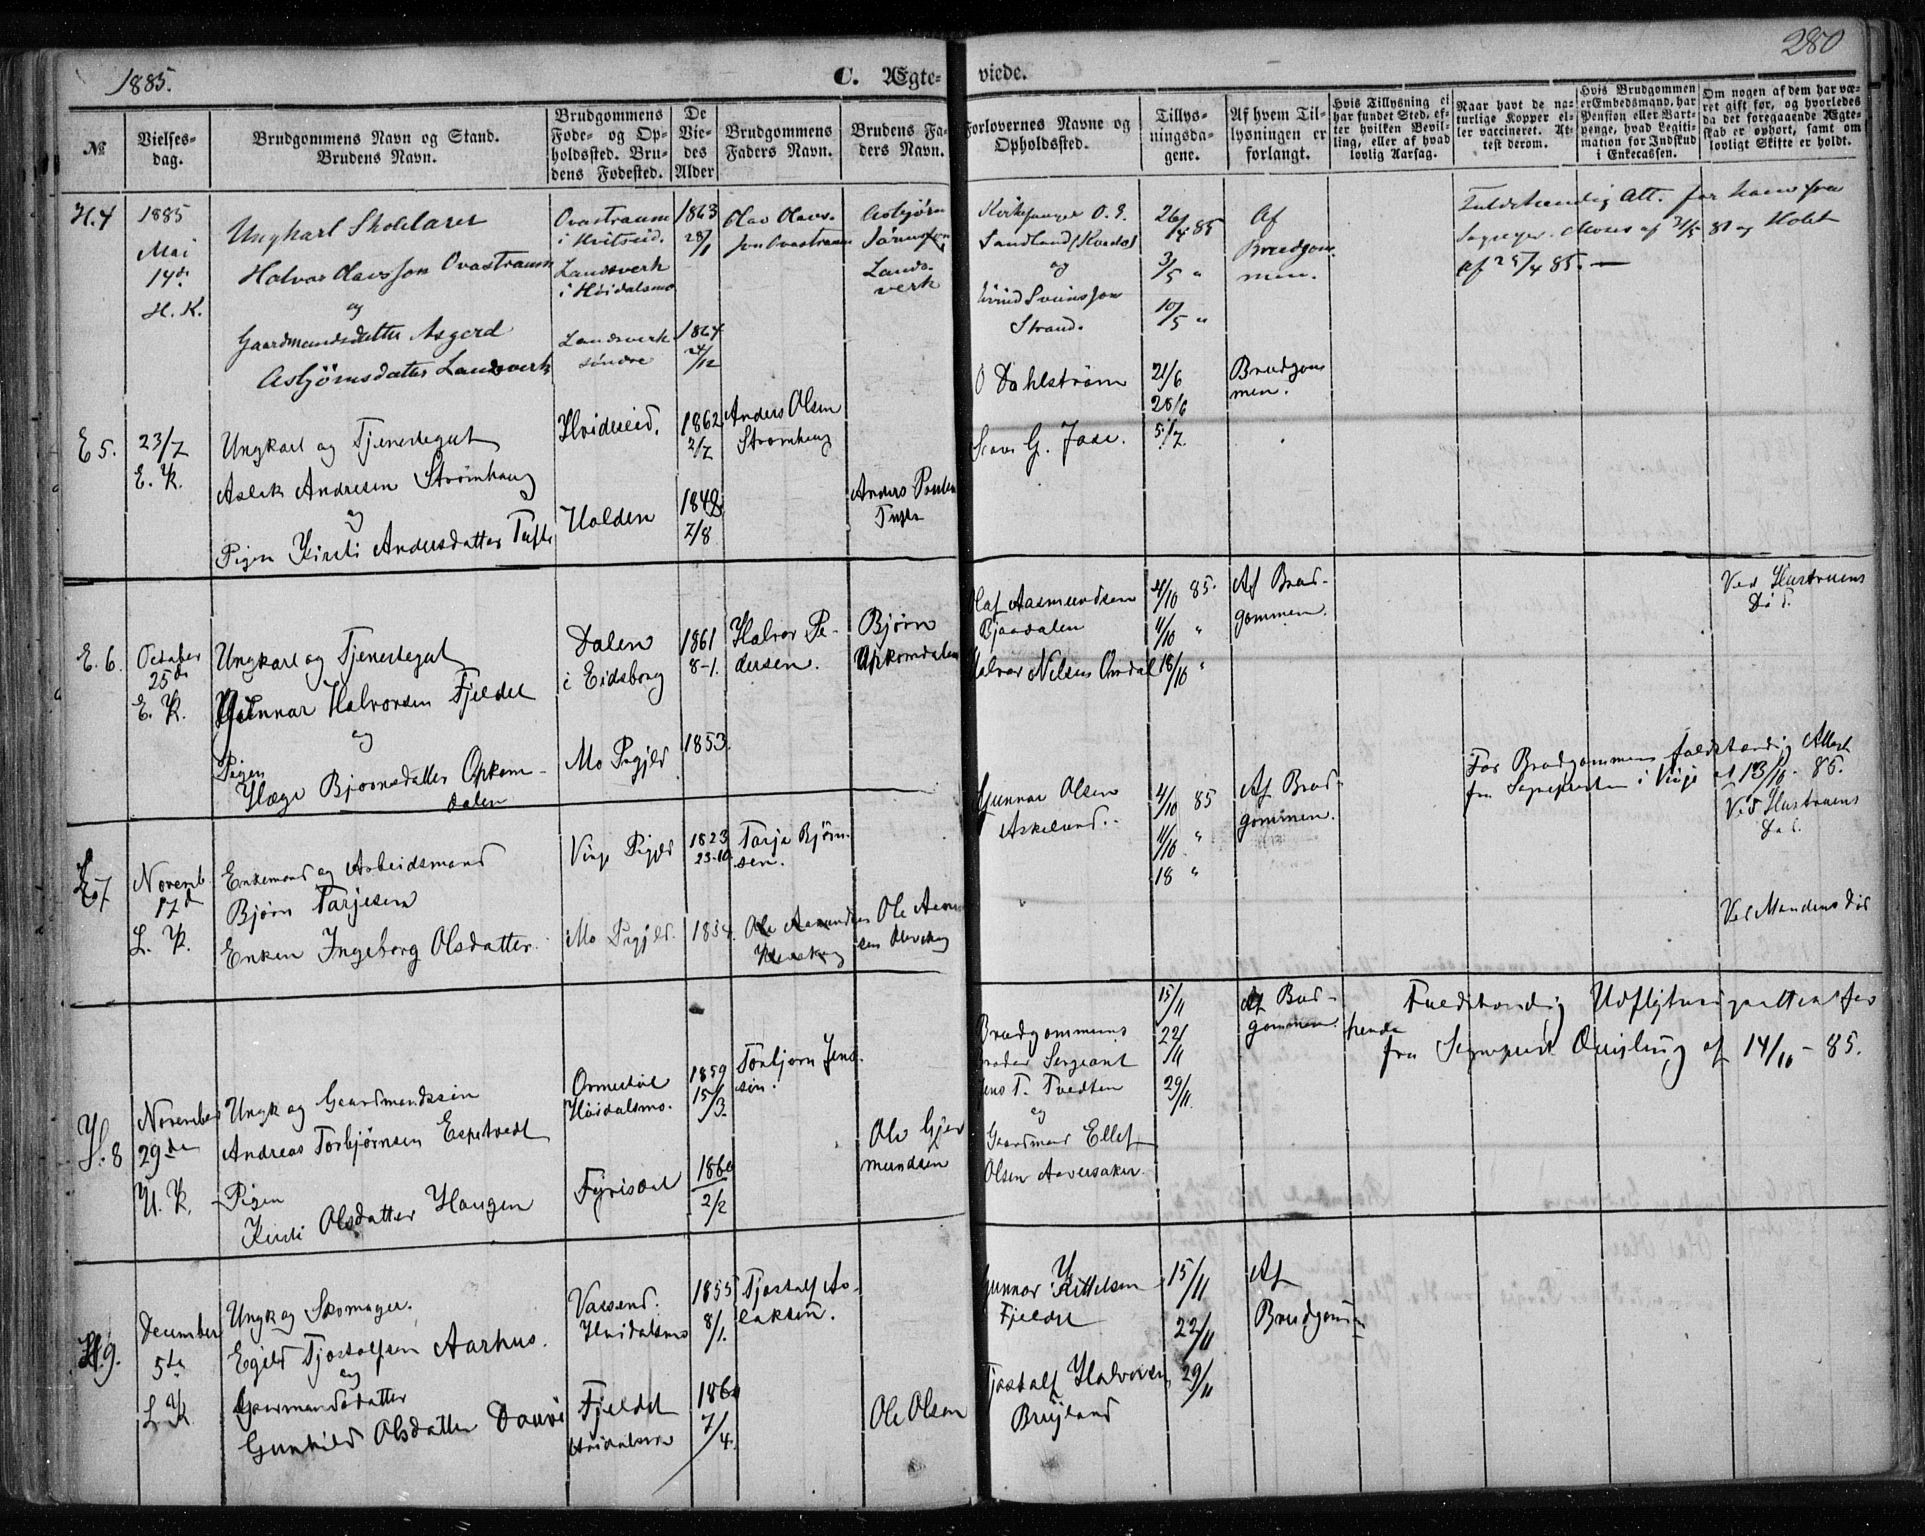 1885.
C. Ægte-
viede.
280
№
Vielses-
dag.
Brudgommens Navn og Stand.
Brudens Navn.
Brudgommens
Føde- og Op-
holdssted. Bru-
dens Fødested.
De
Vie-
des
Alder
Brudgommens
Faders Navn.
Brudens Fa-
ders Navn.
Forlovernes Navne og
Opholdssted.
Tillys-
ningsda-
gene.
Af hvem Til-
lysningen er
forlangt.
Hvis Tillysning ei
har fundet Sted, ef-
ter hvilken Bevil-
ling, eller af hvad
lovlig Aarsag.
Naar havt de na-
turlige Kopper el-
ler vaccineret. At-
test derom.
Hvis Brudgommen
er Embedsmand, har
Pension eller Vart-
penge, hvad Legiti-
mation for Indskud
i Enkecassen.
Om nogen af dem har væ-
ret gift før, og hvorledes
da det foregaaende Ægte-
skab er ophørt, samt om
lovligt Skifte er holdt.
H.4
1885
Mai
14de
H. K.
Ungkarl Skolelærer
Halvor Olavsson Ovastraum
og
Gaardmandsdatter Asgerd
Asbjørnsdatter Landsverk
Ovastraum
i Kvitseid.
Landsverk
i Høidalsmo
Landsverk
søndre
1863
28/1
1864
24/12
Olav Olavs-
son Ovastraum
Asbjørn
Jørundson
Lands-
verk
Kirkesanger O. G.
Sandland (Kvaale)
og
Eivind Sveinsson
Strand.
26/4 85
3/5 "
10/5 "
Af
Brudgom-
men.
Fuldstændig Att. for ham fra
Sogepr. Moves af 31/5 81 og Holst
af 25/4 85. —
E 5.
23/7
E. K.
Ungkarl og Tjenestegut
Aslak Andresen Strømhaug
og
Pigen Kirsti Andersdatter Tufte
Hvideseid.
Holden
1862
2/7
1848
7/8
Anders Olsen
Strømhaug
Anders Poulsen
Tufte
O Dahlstrøm
G. Jore.
21/6
28/6
5/7
Brudgom
men.
E. 6.
October
25de
E. K.
Ungkarl og Tjenestegut
Gunnar Halvorsen Fjeldet
og
Pigen
Hæge Bjørnsdatter Opkom-
dalen
Dalen
i Eidsborg
Mo Prgjeld
1861
8-1.
1853.
Halvor Pe-
dersen.
Bjørn
Upkomdalen
Olaf Aasmundsen
Bjaadalen
Halvor Nilsen Omdal
4/10 85.
11/10 "
18/10 "
Af Brud-
gommen.
Ved Hustruens
Død.
E. 7
Novemb.
17de
L. K.
Enkemand og Arbeidsmand
Bjørn Tarjesen
Enken Ingeborg Olsdatter.
Vinje Prgjeld
Mo Prgjeld.
1823
23-10.
1834.
Tarje Bjørn-
sen.
Ole Aamundsen
Ole Aamund
sen
Gunnar Olsen
Askelund.
4/10 85
11/10 "
18 "
Af Brud-
gommen.
For Brudgommen fuldstændig Attest
fra Sognepresten i Vinje af 13/10 - 85.
Ved Hustruens
Død.
Ved Mandens Død
H. 8
November
29de
H. K.
Ungk og Gaardmandssøn
Andreas Torbjørnsen Espetvedt
Pigen
Kirsti Olsdatter Haugen
Ormedal
Høidalsmo.
Fyrisdal
1859
15/3.
1860
2/2
Torbjørn Jens-
sen.
Ole Gjer
mundsen
Brudgommens
broder Sergeant
Jens T. Tvedten
og
Gaardmand Ellef
Olsen Aaversaker.
15/11
22/11
29/11
Af Brud-
gommen.
Fuldstændig Udflytningsattest for
hende
fra Sognepræst Quisling af 14/10 - 85.
H. 9.
December
5te
L K.
Ungk og Skomager.
Egild Tjostolfsen Aarhus.
og
Gaarmandsdatter
Gunhild Olsdatter Dauvi
Vaasend.
Høidalsmo
Fjeldet
Høidalsmo
1855
8/1.
1860
7/4.
Tjostolf As-
laksen.
Ole Olsen
Gunnar Kittelsen
Fjeldet
Tjostolf Halvorsen
Brujland
15/11
22/11
29/11
Af
Brudgom